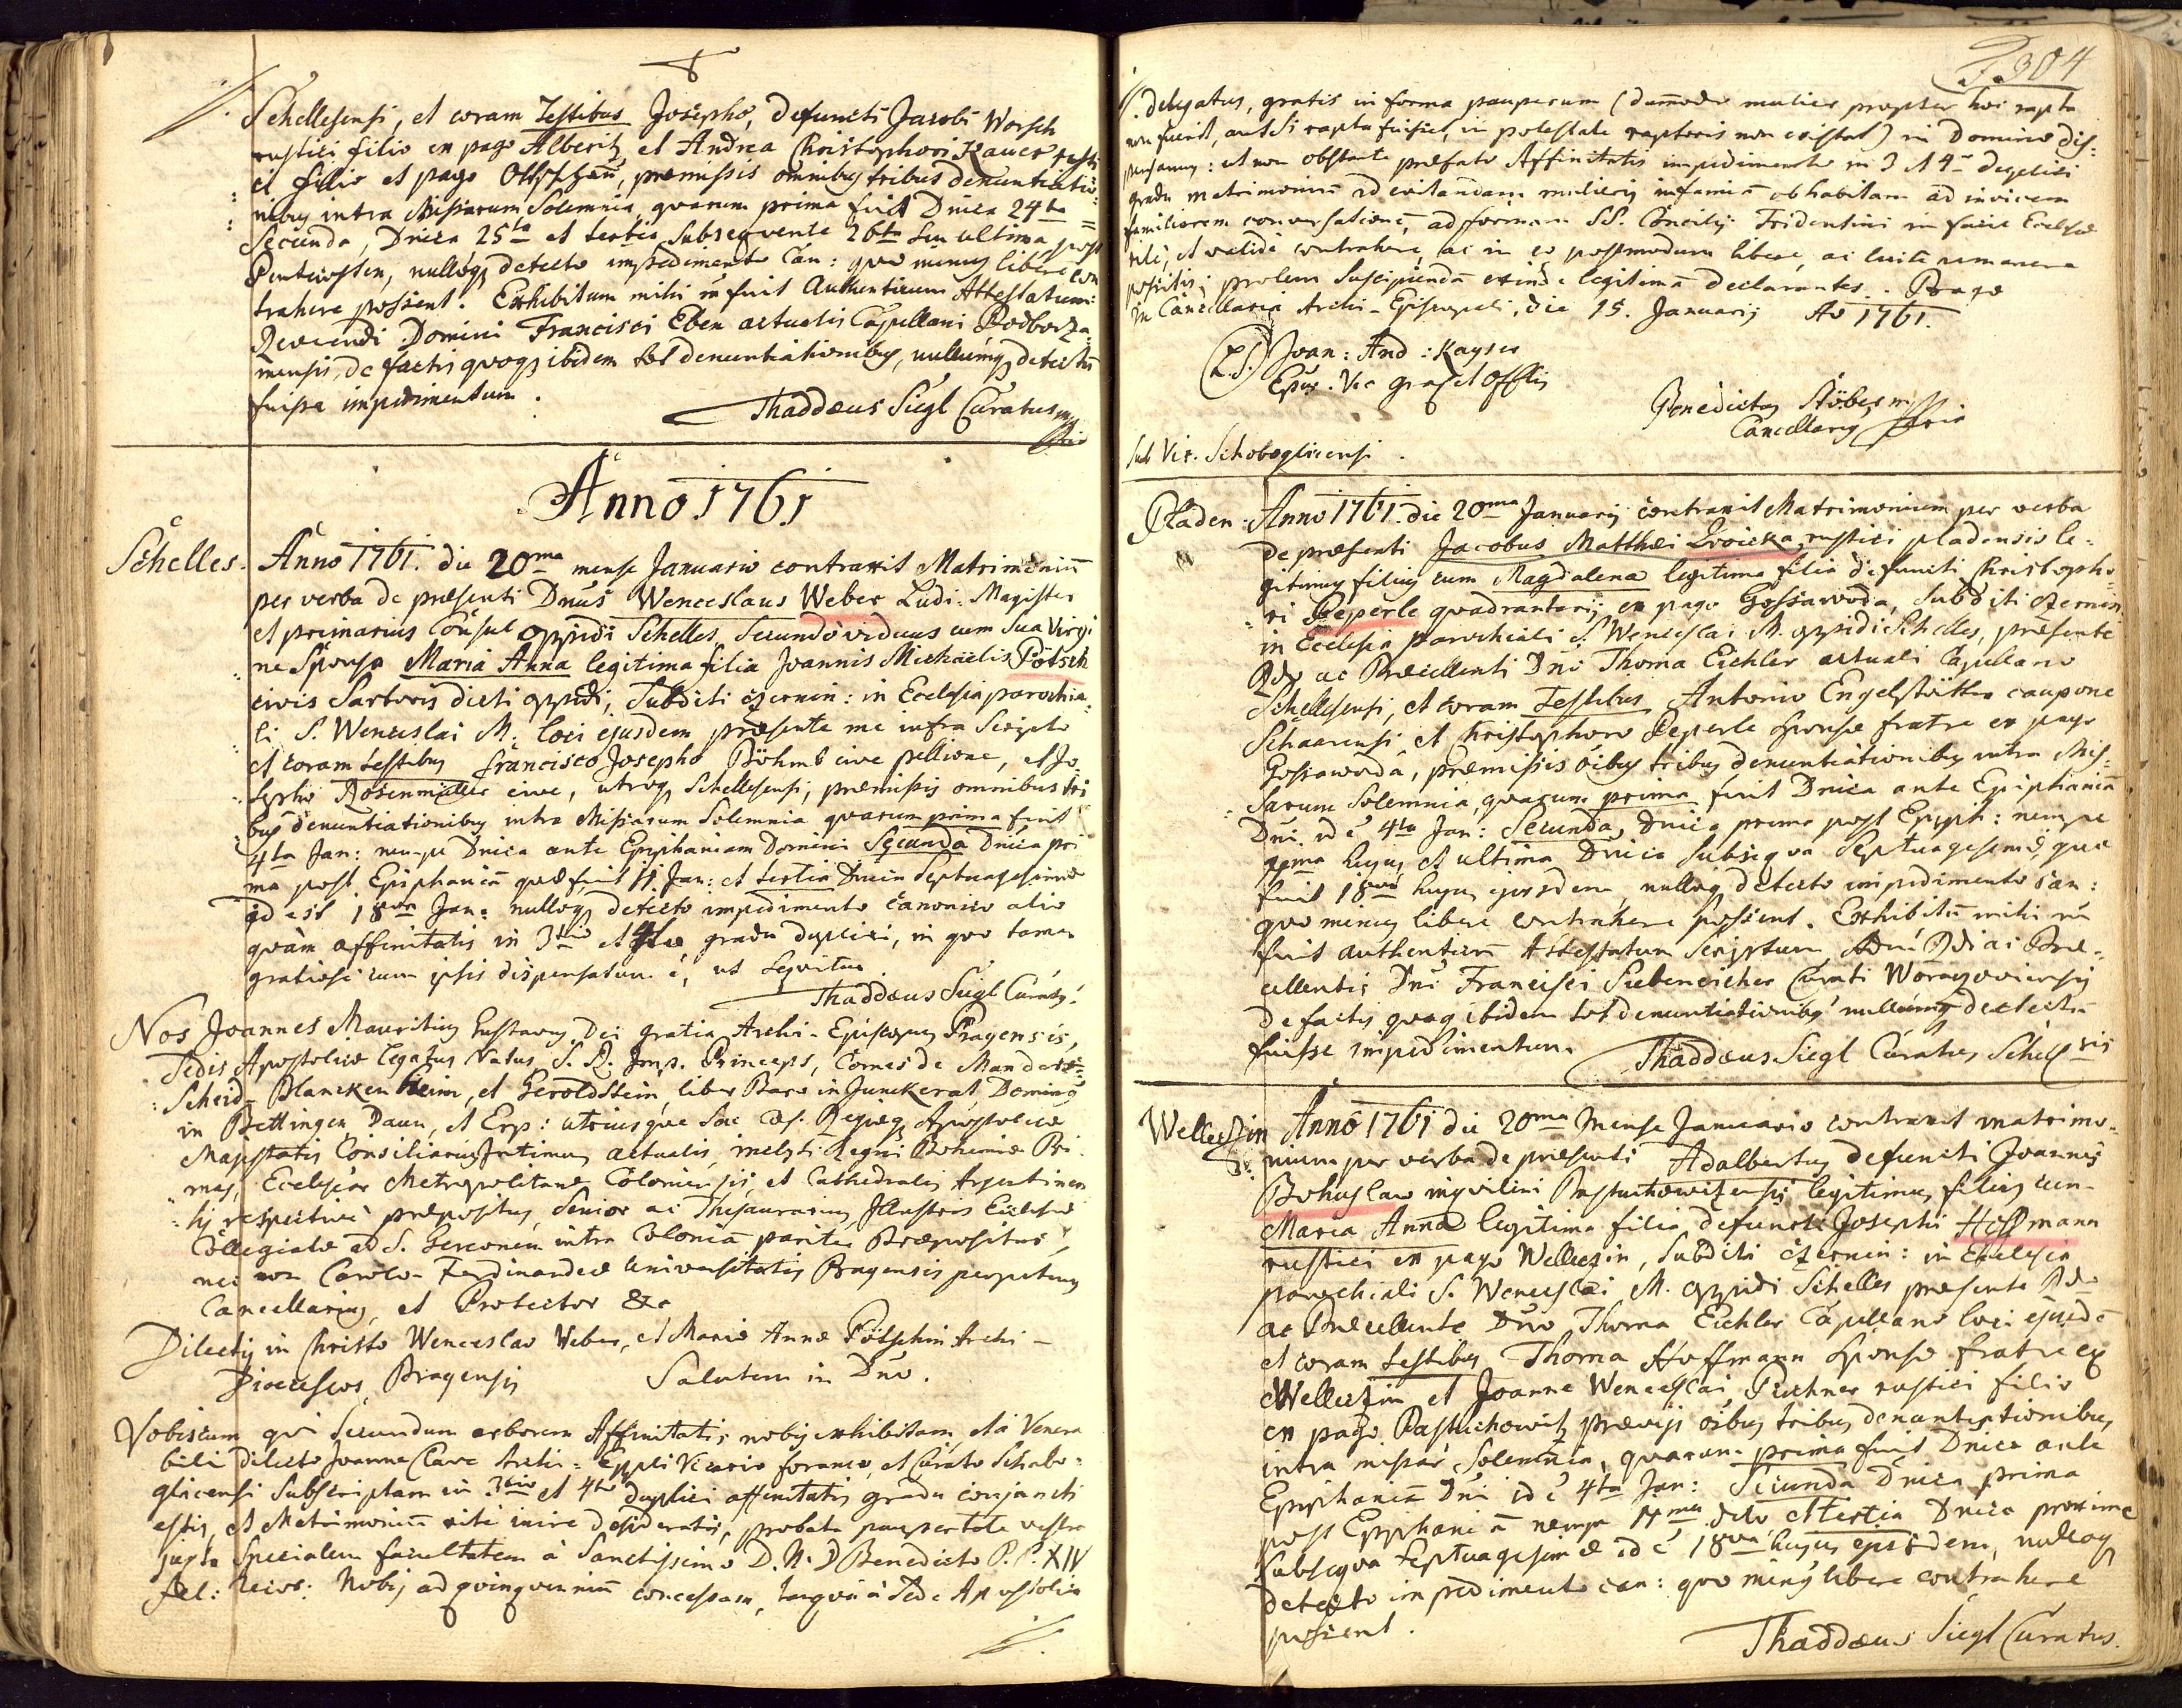 Schellesensi, et coram Testibus Josepho, defuncti Jacobi Worsch
rustici filio ex pago Alberitz et Andrea Christophori Kauer rusti
ci filio et pago præmissis omnibus tribus denuntiatio
nibus intra Missarum Solemnia quarum prima fuit Dnica 24ta
Secunda, Dnica 25ta et tertia Subsequente 26ta seu ultima post
Pentecosten, nulloq detecto impedimento Can: quo minus libere con
trahere possent. Exhibitum mihi fuit Authenticum Attestatum
Reverendi Domini Francisci Eben actualis Capellani Podborza
nensis, de factis quoq ibidem tot denuntiationibus, nullumq detectū
fuisse impedimentum.
Thaddæus Siegl Curatus mp
Anno 1761
Schelles. Anno 1761. die 20ma mense Januario contraxit Matrimoniū
per verba de præsenti Dnus Wenceslaus Weber Ludi-Magister
et primarius Consul oppidi Schelles, Secundo viduus cum sua Virgi
ne Sponsa Maria Anna legitima filia Joannis Michaelis Pötsch
civis Sartoris dicti oppidi, Subditi czernin: in Ecclesia parochia
li S. Wenceslai M. loci ejusdem præsente me infra Scripto
et coram testibus Francisco Josepho Böhmb cive pellione, et Jo
sepho Rosenmüller cive, utroq Schellesensi, præmissis omnibus tri
bus denuntiationibus intra Missarum Solemnia quarum prima fuit
4ta Jan: nempe Dnica ante Epiphaniam Domini Secunda Dnica pri
ma post Epiphaniā quæ fuit 11 Jan: et tertia Dnica Septuagesimæ
id est 18va Jan: nulloq detecto impedimento canonico alio
quàm affinitatis in 3tio et 4to gradu duplici, in quo tamen
gratiose cum ipsis dispensatum ē, ut Sequitur.
Thaddæus Siegl Curatus.
Nos Joannes Mauritius Gustavus Dei gratia Archi-Episcopus Pragensis,
Sedis Apostolicæ legatus Natus, S. R. Imp. Princeps, Comes de Manders=
Scheid-Blanckenheim, et Geroldstein, liber Baro in Junckerat, Dominus
in Bettingen, Daun, et Erp: utriusque Sac Cæs. Regiæq Apostolicæ
Majestatis Consiliarius Intimus actualis, inclyti Regni Bohemiæ Pri
mas, Ecclesiæ Metropolitanæ Coloniensis, et Cathedralis Argentinen
sis respectivè præpositus, Senior ac Thesaurarius, Illustris Ecclesiæ
Collegiatæ ad S. Gereonem intra Coloniā pariter Præpositus,
nec non Carolo-Ferdinandeæ Universitatis Pragensis perpetuus
Cancellarius, et Protector &c
Dilectis in Christo Wenceslao Weber, et Mariæ Annæ Pötschin Archi-
Dioeceseos Pragensis Salutem in Dno.
Vobiscum qui Secundum arborem Affinitatis nobis exhibitam, et à Venera
bili dilecto Joanne Clave Archi-Eppli Vicario foraneo, et Curato Schabo-
glicensi Subscriptam in 3tio et 4to duplici affinitatis gradu conjuncti
estis, et Matrimoniū ritè inire desideratis, probata paupertate vestra
juxta Specialem facultatem à Sanctissimo D. N. D Benedicto P. P. XIV
fel: Nobis ad quinquenniū concessam, tanquā à Sede Apostolica
304
delegatus, gratis in forma pauperum (dummodo mulier propter hoc rapta
non fuerit, aut si rapta fuisset, in potestate raptoris non existat) in Domino dis-
pensamus: et non obstante præfato Affinitatis impedimento in 3 et 4to duplici
gradu matrimoniū ad evitandam mulieris infamiā ob habitam ad invicem
familiarem conversationē, ad formam SS. Concilij Tridentini in facie Ecclesiæ
ritè, et validè contrahere, ac in eo postmodum liberè, ac licitè remanere
possitis; prolem Suscipiendā exinde legitimā declarantes. Pragæ
in Cancellaria Archi-Episcopali, die 15. Januarij Ao 1761.
(L.S.) Joan: And: Kayser
Epūs. Vic Gralis et Offlis
Benedictus Stöber mp
Cancellarius
Sub Vic. Schaboglicensi.
Pladen: Anno 1761. die 20ma Januarij contraxit Matrimonium per verba
de præsenti Jacobus Matthæi Lroicka, rustici pladensis le-
gitimus filius cum Magdalena legitima filia defuncti Christopho
ri Peperle quadrantarij ex pago Gossawoda, Subditi czernin
in Ecclesia parochiali S. Wenceslai M. oppidi Schelles, præsente
Rdo ac Præcellenti Dno Thoma Eichler actuali Capellano
Schellesensi, et coram Testibus Antonio Engelstätter caupone
Schaarensi, et Christophoro Peperle Sponsæ fratre ex pago
Gossawoda, præmissis oibus tribus denuntiationibus intra Mis-
sarum Solemnia, quarum prima fuit Dnica ante Epiphaniā
Dni id ē 4ta Jan: Secunda, Dnica prima post Epiph: nempe
hujus, et ultima Dnica Subseqva Septuagesimæ, quæ
fuit 18va hujus ejusdem, nulloq detecto impedimento can:
quo minus libere contrahere possent. Exhibitū mihi
fuit authenticū Attestatum Scriptum Admi Rdi ac Præ-
cellentis Dni Francisci Siebeneicher Curati Woraczowiensis
de factis quoq ibidem tot denuntiationibq nullumq detectū
fuisse impedimentum. Thaddæus Siegl Curatus Schellsis
Welleczin Anno 1761 die 20ma Mense Januario contraxit matrimo-
nium per verba de præsenti Adalbertus defuncti Joannis
Bohuslaw inquilini Pastuchowitzensis legitimus filius cum
Maria Anna legitima filia defuncti Josephi Hoffmann
rustici ex pago Welleczin, Subditi czernin: in Ecclesia
parochiali S. Wenceslai M. oppidi Schelles præsente Rdo
ac Præcellente Dno Thoma Eichler Capellano loci ejusdē
et coram testibus Thoma Hoffmann Sponsæ fratre ex
Welleczin et Joanne Wenceslai Puchner rustici filio
ex pago Pastuchowitz prævijs oibus tribus denuntiationibus
intra missarū Solemnia, quarum prima fuit Dnica ante
Epiphaniā Dni id ē 4ta Jan: Secunda Dnica prima
post Epiphaniā nempe 11ma dto et tertia Dnica proxime
Subseqva Septuagesimæ id ē 18va hujus ejusdem, nulloq
detecto impedimento can: quo minus libere contrahere
possent.
Thaddæus Siegl Curatus.